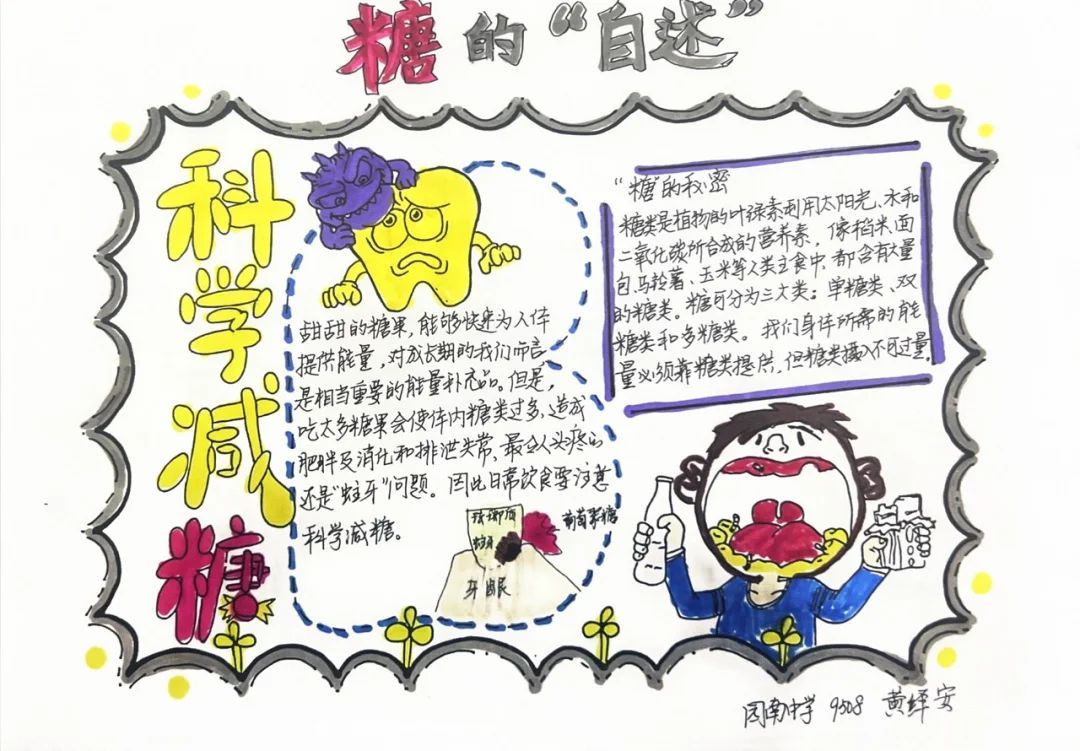 糖的“自述”
科学减糖
甜甜的糖果，能够快速为人体
提供能量，对成长期的我们而言
是相当重要的能量补充品。但是，
吃太多糖果会使体内糖类过多，造成
肥胖及消化和排泄失常，最令人头疼的
还是“蛀牙”问题。因此日常饮食要注意
科学减糖。
珐琅质
蛀牙
葡萄聚糖
牙龈
“糖”的秘密
糖类是植物的叶绿素利用太阳光、水和
二氧化碳所合成的营养素，像稻米、面
包、马铃薯、玉米等人类主食中，都含有大量
的糖类。糖可分为三大类：单糖类、双
糖类和多糖类。我们身体所需的能
量必须靠糖类提供，但糖类摄入不可过量。
园南中学 9508 黄绎安